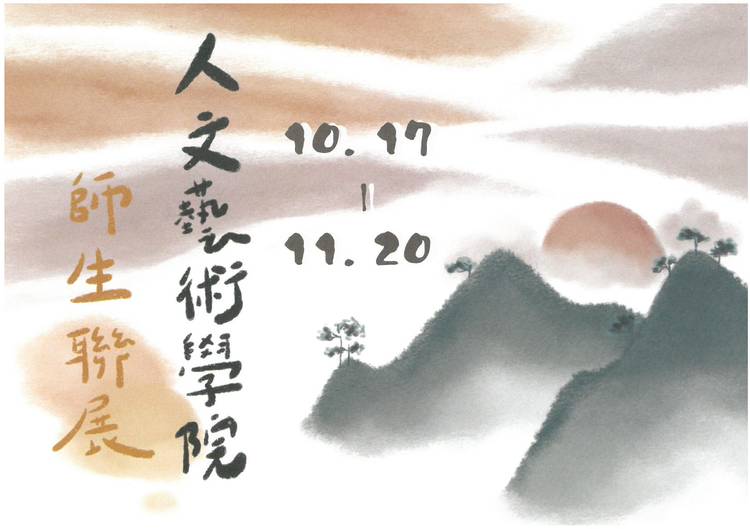 人文藝術學院
師生聯展
10.17
||
11.20